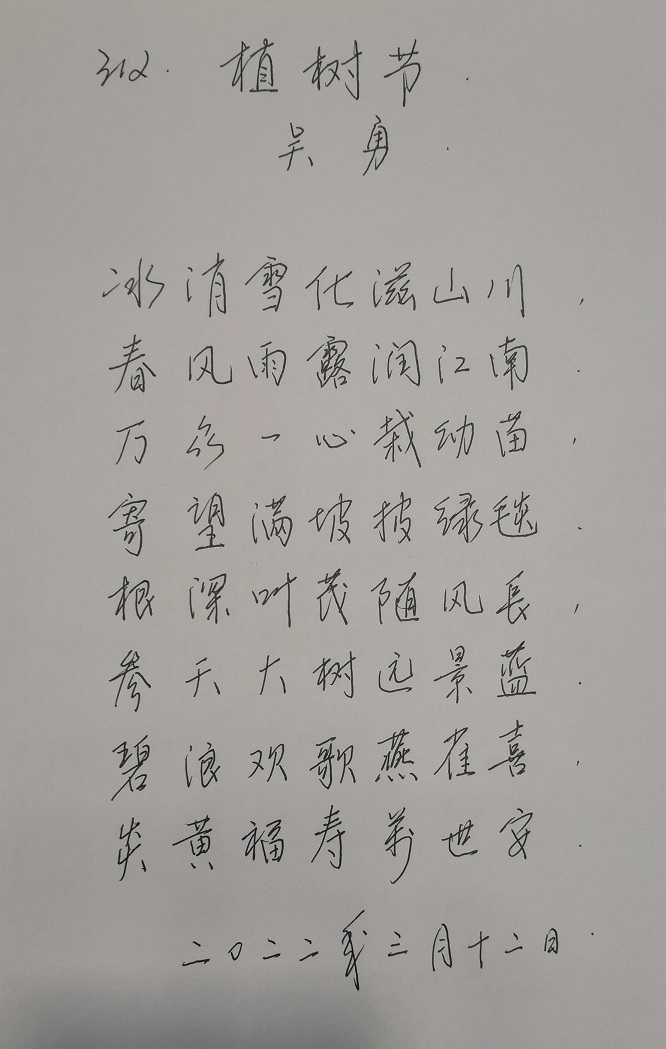 312. 植树节.
吴勇.
冰消雪化滋山川,
春风雨露润江南.
万众一心栽幼苗,
寄望满坡披绿毯.
根深叶茂随风長,
参天大树远景蓝.
碧浪欢歌燕雀喜,
炎黄福寿万世安.
二0二二年三月十二日.